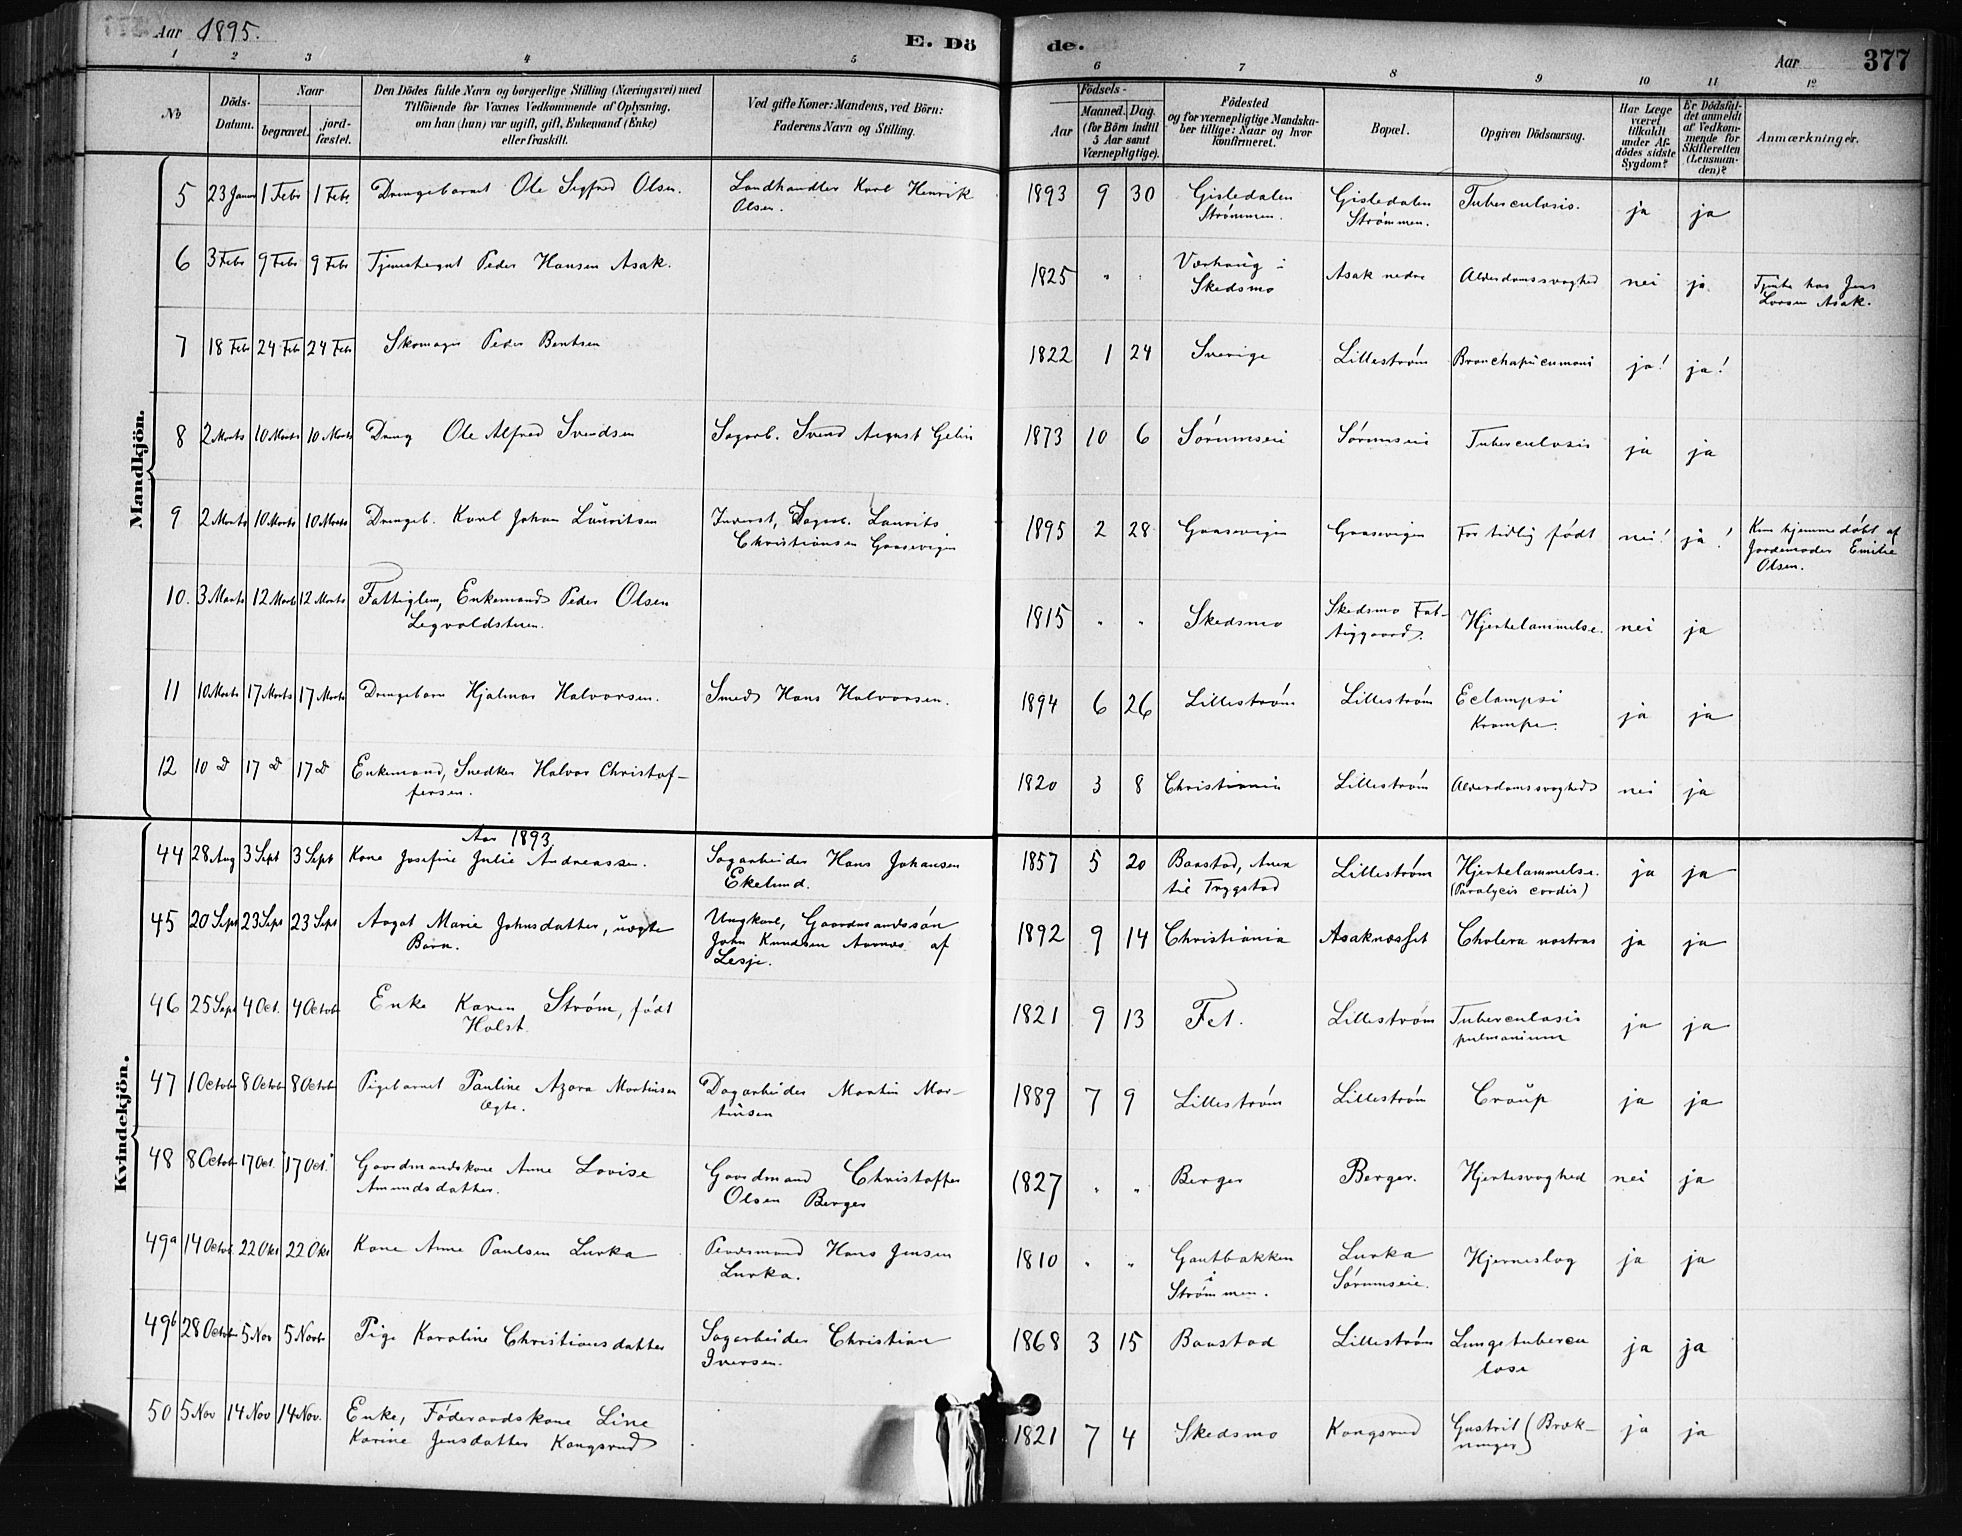 Aar 1895.
E. Dö
de.
Aar
377
1 2 3 4 5 6 7 8 9 10 11 12
No
Döds-
Datum.
Naar
begravet.
jord-
fæstet.
Den Dödes fulde Navn og borgerlige Stilling (Næringsvei) med
Tilföiende for Voxnes Vedkommende af Oplysning,
om han (hun) var ugift, gift, Enkemand (Enke)
eller fraskilt.
Ved gifte Koner: Mandens, ved Börn:
Faderens Navn og Stilling.
Födsels-
Aar
Maaned. Dag.
(for Börn indtil
5 Aar samt
Værnepligtige).
Födested
og for værnepligtige Mandska-
ber tillige: Naar og hvor
konfirmeret.
Bopæl.
Opgiven Dödsaarsag.
Har Læge
været
tilkaldt
under Af-
dödes sidste
Sygdom?
Er Dödsfal-
det anmeldt
af Vedkom-
mende for
Skifteretten
(Lensman-
den)?
Anmærkninger.
Mandkjön.
5 23 Januar 1 Febr 1 Febr Drengebarnet Ole Sigfred Olsen. Landhandler Karl Henrik
Olsen.
1893 9 30 Gisledalen
Strømmen.
Gisledalen
Strømmen.
Tuberculosis. ja ja
6 3 Febr 9 Febr 9 Febr Tjenestegut Peder Hansen Asak.
1825 " " Værhaug i
Skedsmo
Asak nedre Alderdomssvaghed nei ja Tjente hos Jens
Larsen Asak.
7 18 Febr 24 Febr 24 Febr Skomager Peder Bentsen
1822 1 24 Sverige Lillestrøm Bronchopneumoni ja! ja!
8 2 Marts 10 Marts 10 Marts Dreng Ole Alfred Svendsen Sagarb. Svend August Gelin
1873 10 6 Sørumseie Sørumseie Tuberculosis ja ja
9 2 Marts 10 Marts 10 Marts Drengeb. Karl Johan Lauritsen Inderst, Dagarb. Laurits
Christiansen Gaasevigen
1895 2 28 Gaasevigen Gaasevigen For tidlig født nei! ja! Kun hjemmedøbt af
Jordemoder Emilie
Olsen.
10. 3 Marts 12 Marts 12 Marts Fattiglem, Enkemand Peder Olsen
Legvoldsteien.
1815 " " Skedsmo Skedsmo Fat-
tiggaard.
Hjertelammelse. nei ja
11 10 Marts 17 Marts 17 Marts Drengebarn Hjalmar Halvorsen. Smed Hans Halvorsen.
1894 6 26 Lillestrøm Lillestrøm Eclampsi
Krampe.
ja ja
12 10 D 17 D 17 D Enkemand, Snedker Halvor Christof-
fersen.
1820 3 8 Christiania Lillestrøm Alderdomssvaghed nei ja
Kvindekjön.
Aar 1893.
44 28 Aug 3 Sept 3 Sept Kone Josefine Julie Andreassen. Sagarbeider Hans Johansen
Ekelund.
1857 5 20 Baastad, Anex
til Trygstad
Lillestrøm Hjertelammelse.
(Paralycis cordis)
ja ja
45 20 Sept 23 Sept 23 Sept Aagot Marie Johnsdatter, uægte
Barn.
Ungkarl, Gaardmandssøn
John Knudsen Aames af
Lesje.
1892 9 14 Christiania Asaknosset Cholera nostras ja ja
46 25 Sept 4 Oct. 4 October Enke Karen Strøm, født
Holst.
1821 9 13 Fet. Lillestrøm Tuberculosis
pulmonium
ja ja
47 1 October 8 October 8 October Pigebarnet Pauline Azora Martinsen
ægte.
Dagarbeider Martin Mar-
tinsen
1889 7 9 Lillestrøm Lillestrøm Croup ja ja
48 8 October 17 Oct. 17 Oct. Gaardmandskone Anne Lovise
Amundsdatter.
Gaardmand Christoffer
Olsen Berger
1827 " " Berger Berger. Hjertesvaghed nei ja
49a 14 Octob. 22 Okt 22 Okt Kone Anne Paulsen Lurka Pensmand Hans Jensen
Lurka.
1810 " " Gautbakken
i
Strømmen.
Lurka
Sørumseie.
Hjerneslag ja ja
49b 28 October 5 Nov 5 Novbr Pige Karoline Christiansdatter Sagarbeider Christian
Iversen.
1868 3 15 Baastad Lillestrøm Lungetubercu
lose
ja ja
50 5 Nov 14 Nov 14 Nov. Enke, Føderaadskone Line
Karine Jensdatter Kongsrud
1821 7 4 Skedsmo Kongsrud Gastrit (Bræk-
ninger)
ja ja